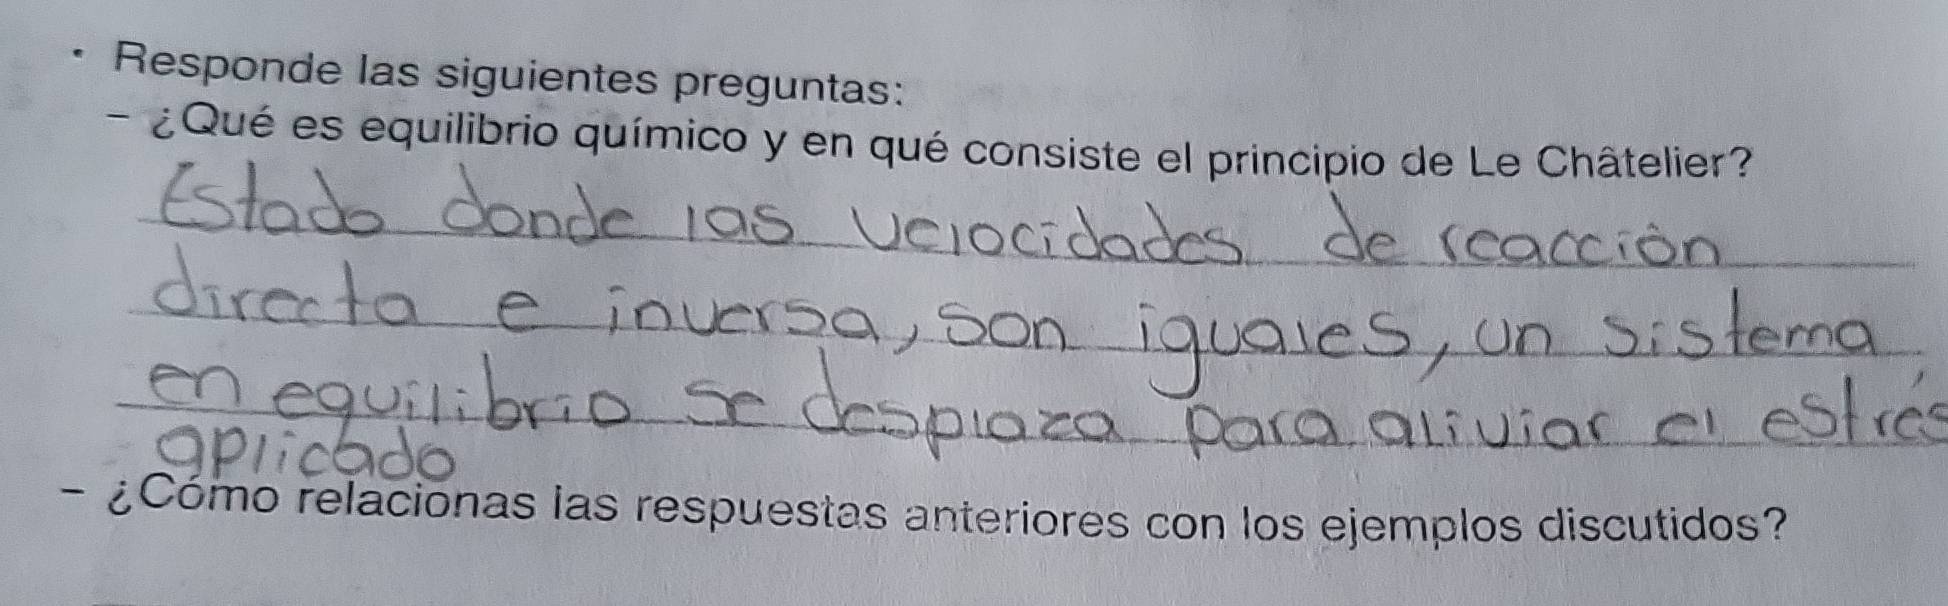 · Responde las siguientes preguntas:
- ¿Qué es equilibrio químico y en qué consiste el principio de Le Châtelier?
Estado donde las velocidades de reacción
directa e inversa, son iguales, un sistema
en equilibrio se desplaza para aliviar el estrés
aplicado
- ¿Cómo relacionas las respuestas anteriores con los ejemplos discutidos?